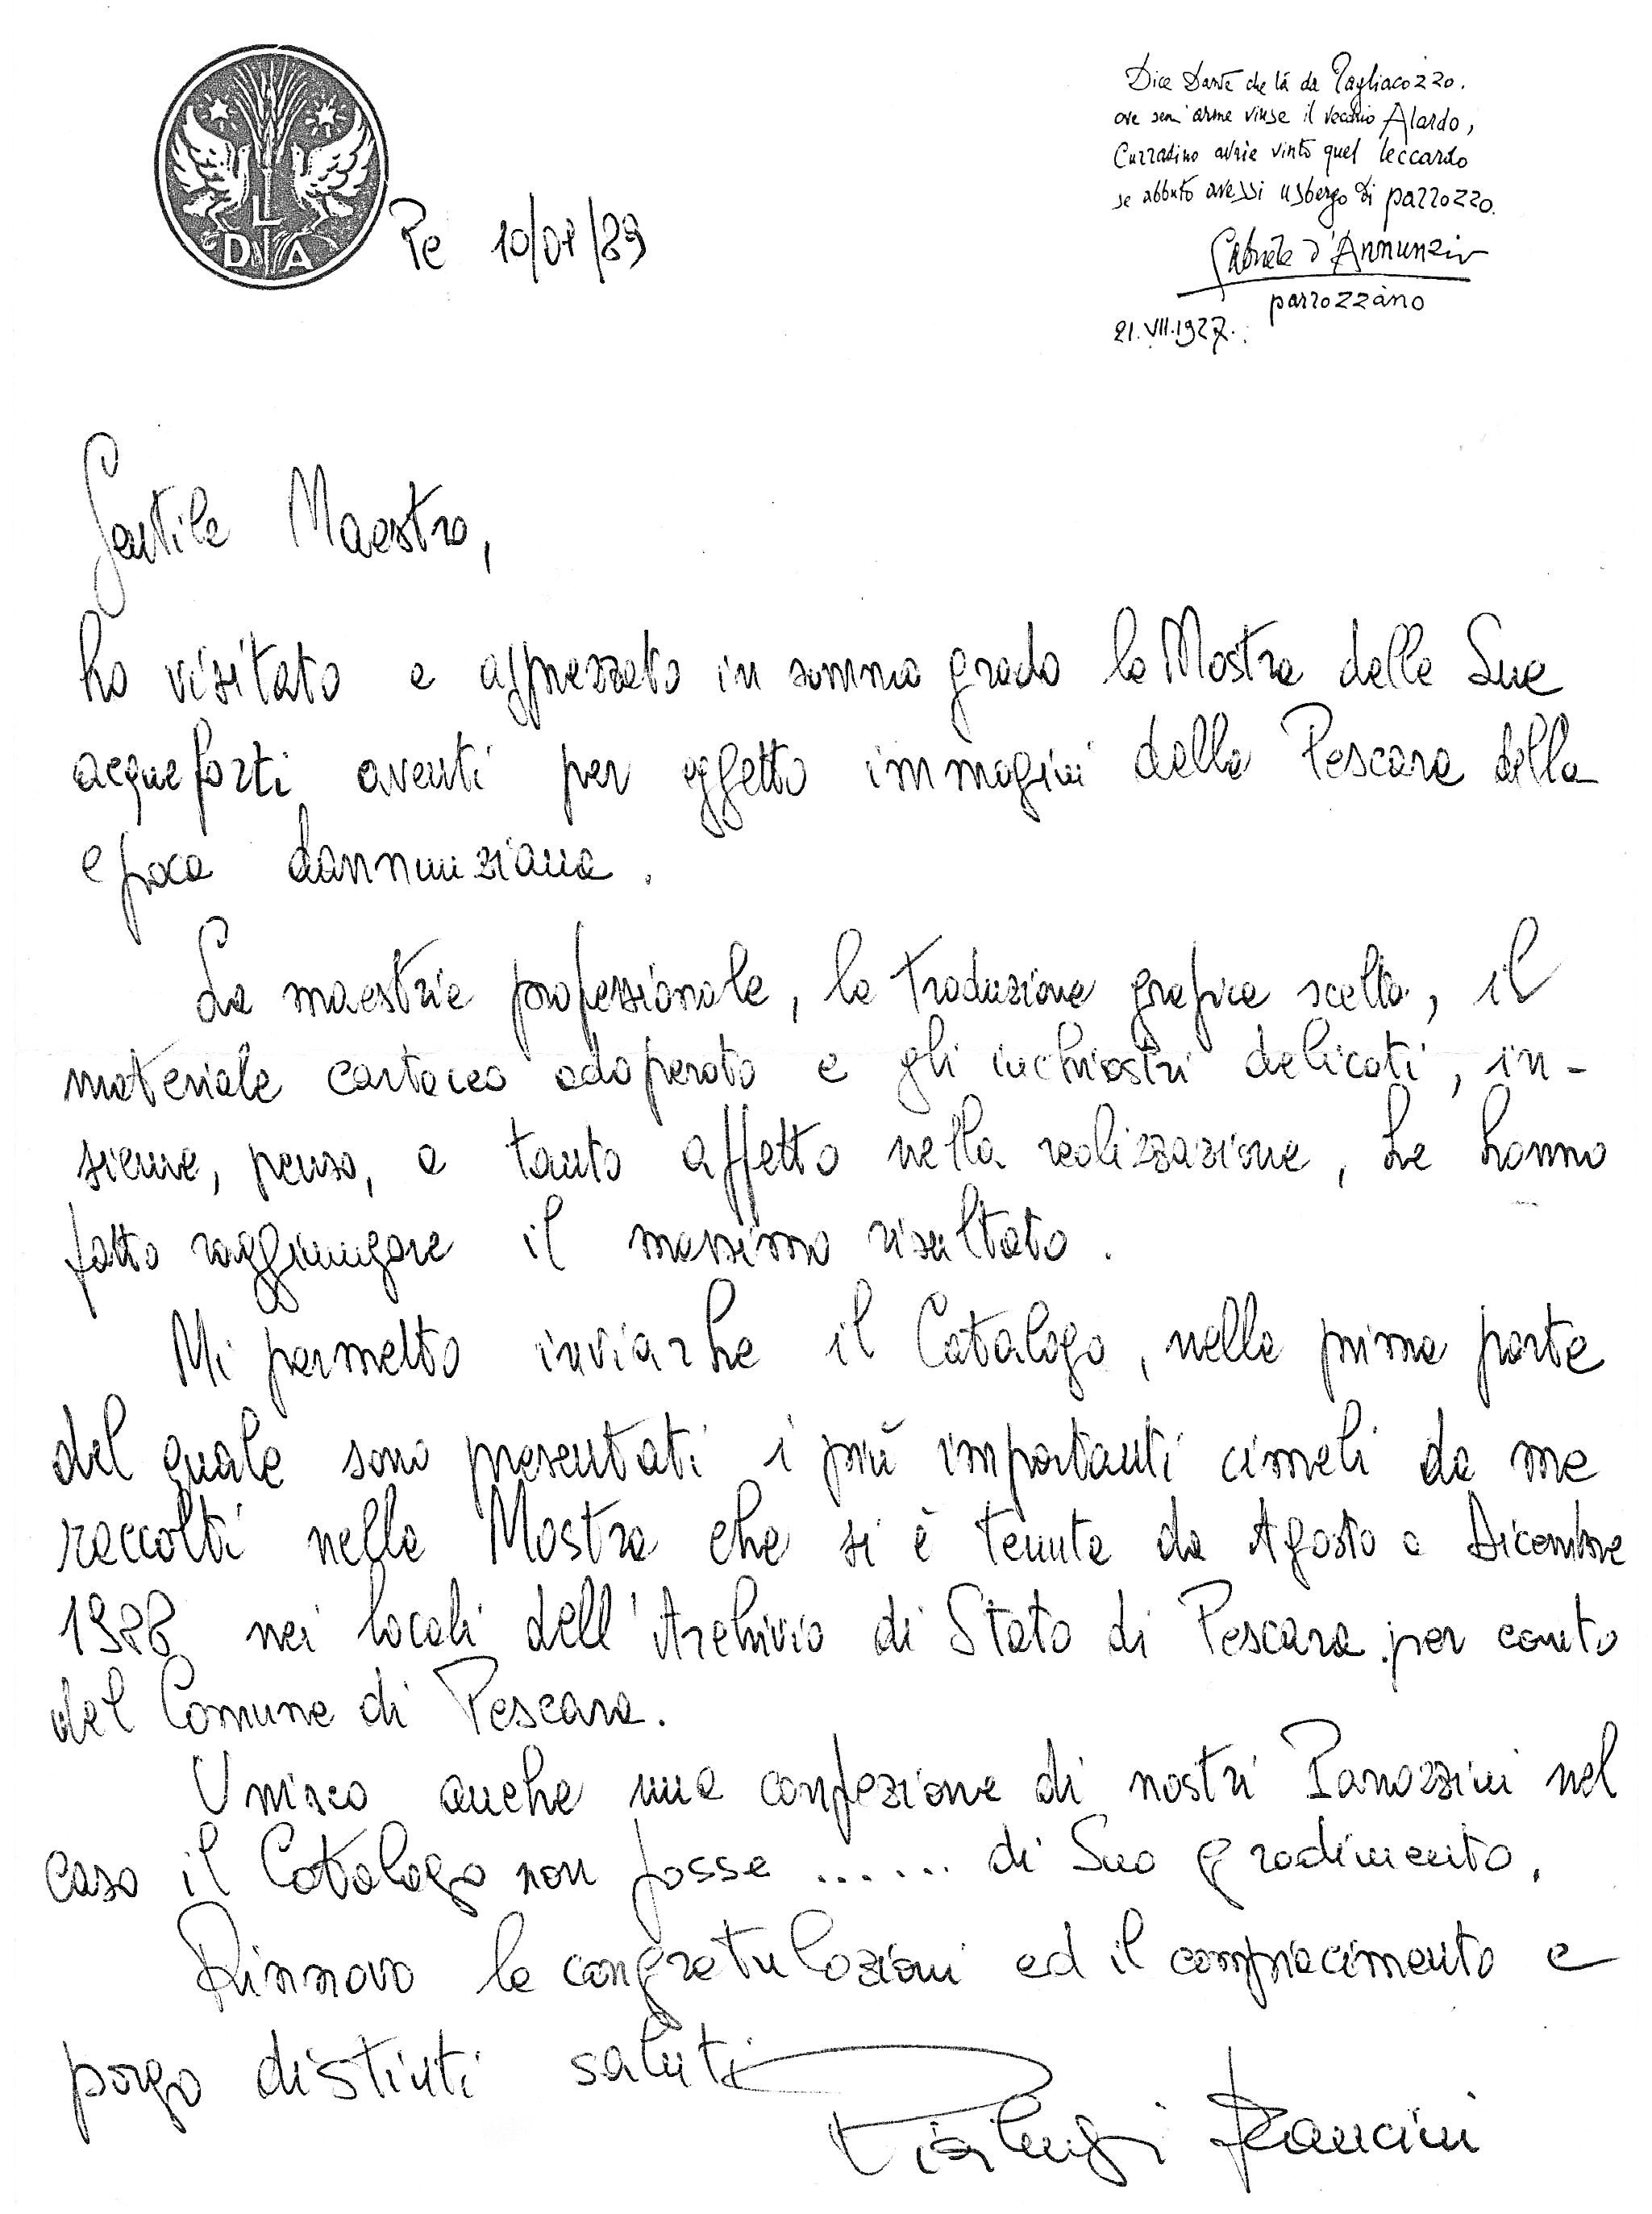 L
D A
Pe 10/01/89
Dice Dante che là da Tagliacozzo.
ove senz'arme vinse il vecchio Alardo,
Curradino avrie vinto quel leccardo
se abbuto avessi usbergo di parrozzo.
Gabriele d'Annunzio
parrozzàno
21.VII.1927.
Gentile Maestro,
ho visitato e apprezzato in sommo grado la Mostra delle Sue
acqueforti aventi per oggetto immagini della Pescara della
epoca dannunziana.
La maestria professionale, la traduzione grafica scelta, il
materiale cartaceo adoperato e gli inchiostri delicati, in-
sieme, penso, a tanto affetto nella realizzazione, Le hanno
fatto raggiungere il massimo risultato.
Mi permetto inviarLe il Catalogo, nella prima parte
del quale sono presentati i più importanti cimeli da me
raccolti nella Mostra che si è tenuta da Agosto a Dicembre
1988 nei locali dell'Archivio di Stato di Pescara per conto
del Comune di Pescara.
Unisco anche una confezione di nostri Parrozzini nel
caso il Catalogo non fosse ...... di Suo gradimento.
Rinnovo le congratulazioni ed il compiacimento e
porgo distinti saluti
Pierluigi Francini